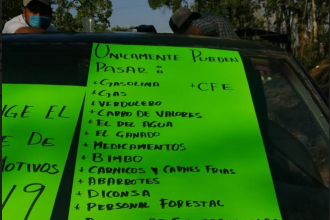 UNICAMENTE PUEDEN
PASAR:
+ GASOLINA
+ CFE
+ GAS
+ VERDULERO
+ CARRO DE VALORES
+ EL DEL AGUA
+ EL GANADO
+ MEDICAMENTOS
+ BIMBO
+ CARNICOS Y CARNES FRIAS
+ ABARROTES
+ DICONSA
+ PERSONAL FORESTAL
GE EL
E DE
MOTIVOS
19